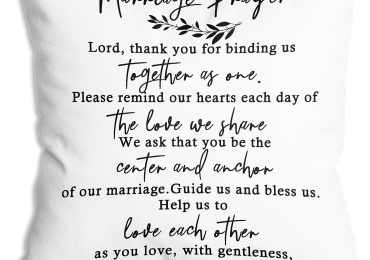 Marriage Prayer
Lord, thank you for binding us
together as one.
Please remind our hearts each day of
the love we share
We ask that you be the
center and anchor
of our marriage.Guide us and bless us.
Help us to
love each other
as you love, with gentleness,